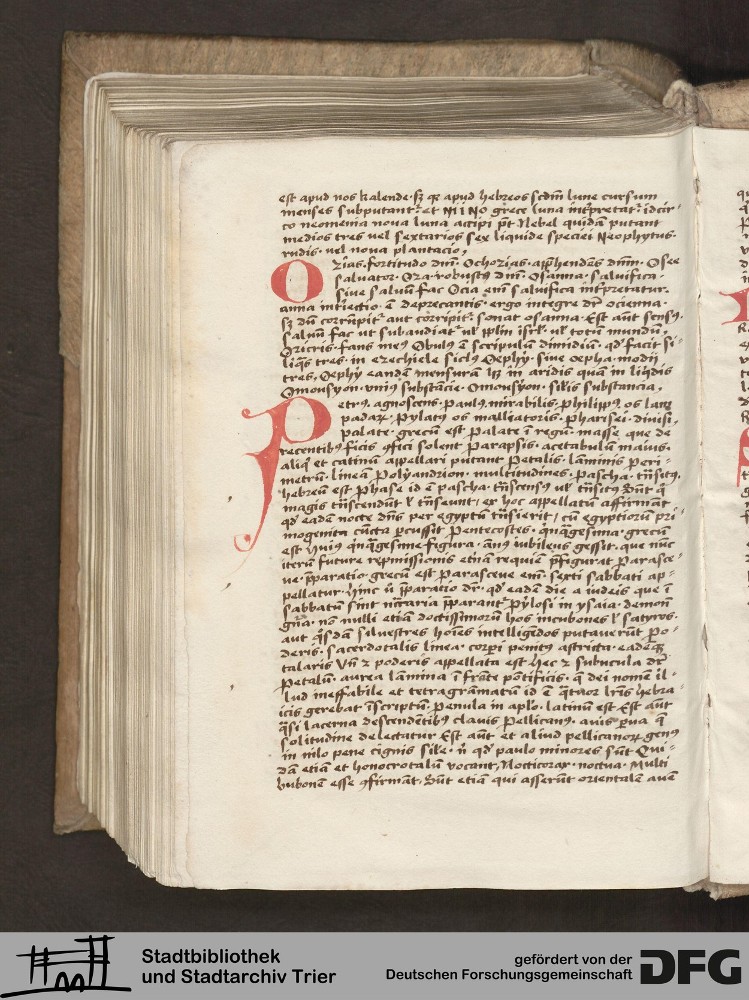 est apud nos kalende. sz qr apud hebreos scdm lune cursum
menses subputantr: et NEINO grece luna intpretatr: idcir-
co neomenia noua luna accipi pt Nebel quidā putant
medios tres uel sextarios sex liquide speciei Neophytus.
rudis. uel noua plantacio,
Ozias. fortitudo dni. Ochozias. apphendēs dnm. Osee
saluator. Oza. robustꝰ dni. Osanna. saluifica.
siue saluū fac Ocia em saluifica intpretatur.
anna intiectio ē deprecantis. ergo integre dr ocienna.
sz dū corrūpitr aut corripitr: sonat osanna. Est aut sensꝰ.
saluū fac ut subaudiatr ul pplm isrl. ul totū mundū,
meꝰ Obulꝰ ē scripulū dimidiū. qd facit si-
liqs tres. in ezechiele siclꝰ Oephy. siue oepha. modij
tres, Oephy eandē mensurā lz in aridis quā in liqdis
Omousyon. vniꝰ substācie. Omousyon. silis substancia,
Petrꝰ. agnoscens. Paulꝰ. mirabilis. Philippꝰ. os lāpa
padaꝝ. Pylatꝰ os malliatoris. Pharisei. diuisi,
palate. grecū est Palate ī regū. masse que de
recentibꝰ ficis ꝯfici solent Parapsis. acetabulū maius.
aliqͥ et catinū appellari putant Petalis. lāminis Peri-
metrū. linea Polyandrion. multitudines. Pascha. tnsitꝰ.
hebreū est Phase id ē pascha. tnscensꝰ ul tnsitꝰ Sūt qͥ
magis tnscendūt l tnseunt, ex hoc appellatū affirmāt
qd eadē nocte dns per egyptū tnsierit, cū egyptiorū pri-
mogenita cūcta pcussit Pentecostes. qͥnqͣgesima. grecū
est hꝰ qͥnqͣgesime figura. anꝰ iubileus gessit. que nūc
iterū future repmissionis etnā requiē pfigurat Parasce-
ue. pparatio. grecū est Parasceue em. sexti sabbati ap-
pellatur. hinc ū pparatio dr. qd eadē die a iudeis que ī
sabbatū sint nccaria pparantr Pylosi in ysaia. demonū
gna. no nulli etiā doctissimorū hos incubones l satyros.
aut qͥsdā siluestres hoies intelligēdos putauerūt Po-
deris. sacerdotalis linea. corpi penitꝰ astricta. eadēqz
talaris Vn z poderis appellata est hec z subucula dr
Petalū. aurea lāmina ī frōte pōtificis. qͣ dei nomē il-
lud ineffabile et tetragrāmatū id ē qͣtuor lris hebra-
icis gerebat īscriptū. Penula in aplo. latinū est Est aūt
qͣsi lacerna descendētibꝰ clauis Pellicanꝰ. auis pua qͣ
solitudine delectatur Est aūt et aliud pellicanoꝝ genꝰ
in nilo pene cignis sile. ni qd paulo minores sūt Qui-
dā etiā et honocrotalū vocant, Nocticorax. noctua. Multi
bubonē esse ꝯfirmāt. Sūt etiā qui asserūt orientalē auē
Stadtbibliothek
und Stadtarchiv Trier
gefördert von der
Deutschen Forschungsgemeinschaft
DFG